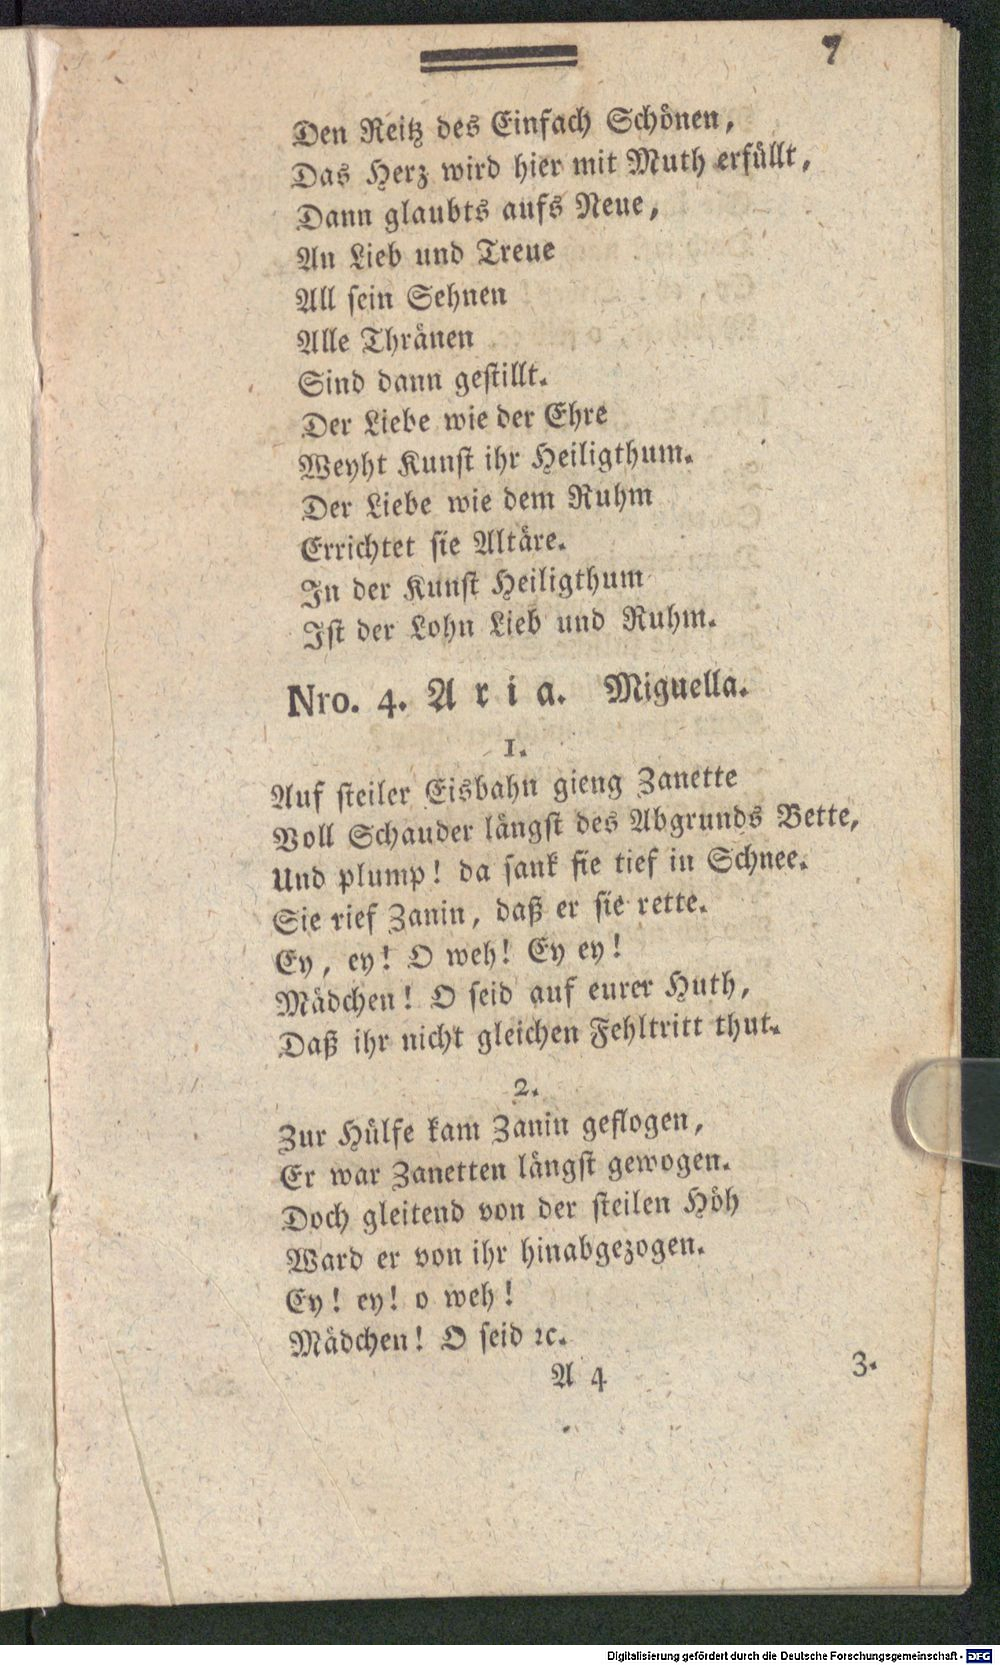 7
Den Reitz des Einfach Schönen,
Das Herz wird hier mit Muth erfüllt,
Dann glaubts aufs Neue,
An Lieb und Treue
All sein Sehnen
Alle Thränen
Sind dann gestillt.
Der Liebe wie der Ehre
Weyht Kunst ihr Heiligthum.
Der Liebe wie dem Ruhm
Errichtet sie Altäre.
In der Kunst Heiligthum
Ist der Lohn Lieb und Ruhm.
Nro. 4. Aria. Miguella.
1.
Auf steiler Eisbahn gieng Zanette
Voll Schauder längst des Abgrunds Bette,
Und plump! da sank sie tief in Schnee.
Sie rief Zanin, daß er sie rette.
Ey, ey! O weh! Ey ey!
Mädchen! O seid auf eurer Huth,
Daß ihr nicht gleichen Fehltritt thut.
2.
Zur Hülfe kam Zanin geflogen,
Er war Zanetten längst gewogen.
Doch gleitend von der steilen Höh
Ward er von ihr hinabgezogen.
Ey! ey! o weh!
Mädchen! O seid ꝛc.
A 4 3.
Digitalisierung gefördert durch die Deutsche Forschungsgemeinschaft - DFG